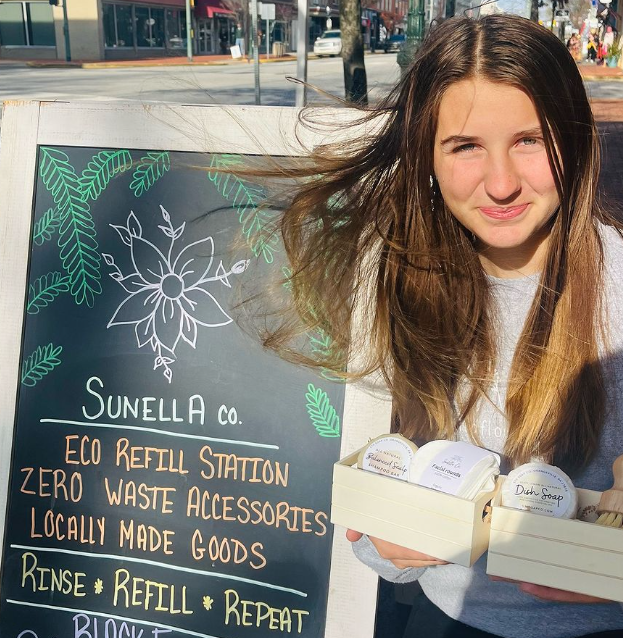 SUNELLA CO.
ECO REFILL STATION
ZERO WASTE ACCESSORIES
LOCALLY MADE GOODS
RINSE * REFILL * REPEAT
BLOCK
Balanced Scalp
SHAMPOO BAR
Facial rounds
Dish Soap